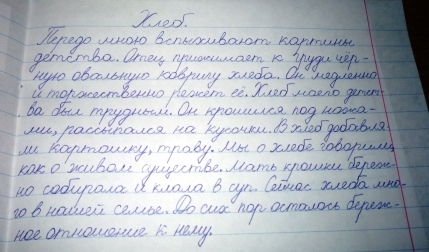 Хлеб.
Передо мною вспыхивают картины
детства. Отец прижимает к груди чёр-
ную овальную ковригу хлеба. Он медленно
и торжественно режет её. Хлеб моего детст-
ва был трудным. Он крошился под ножа-
ми, рассыпался на кусочки. В хлеб добавля-
ли картошку, траву. Мы о хлебе говорили,
как о живом существе. Мать крошки береж-
но собирала и клала в суп. Сейчас хлеба мно-
го в нашей семье. До сих пор осталось береж-
ное отношение к нему.